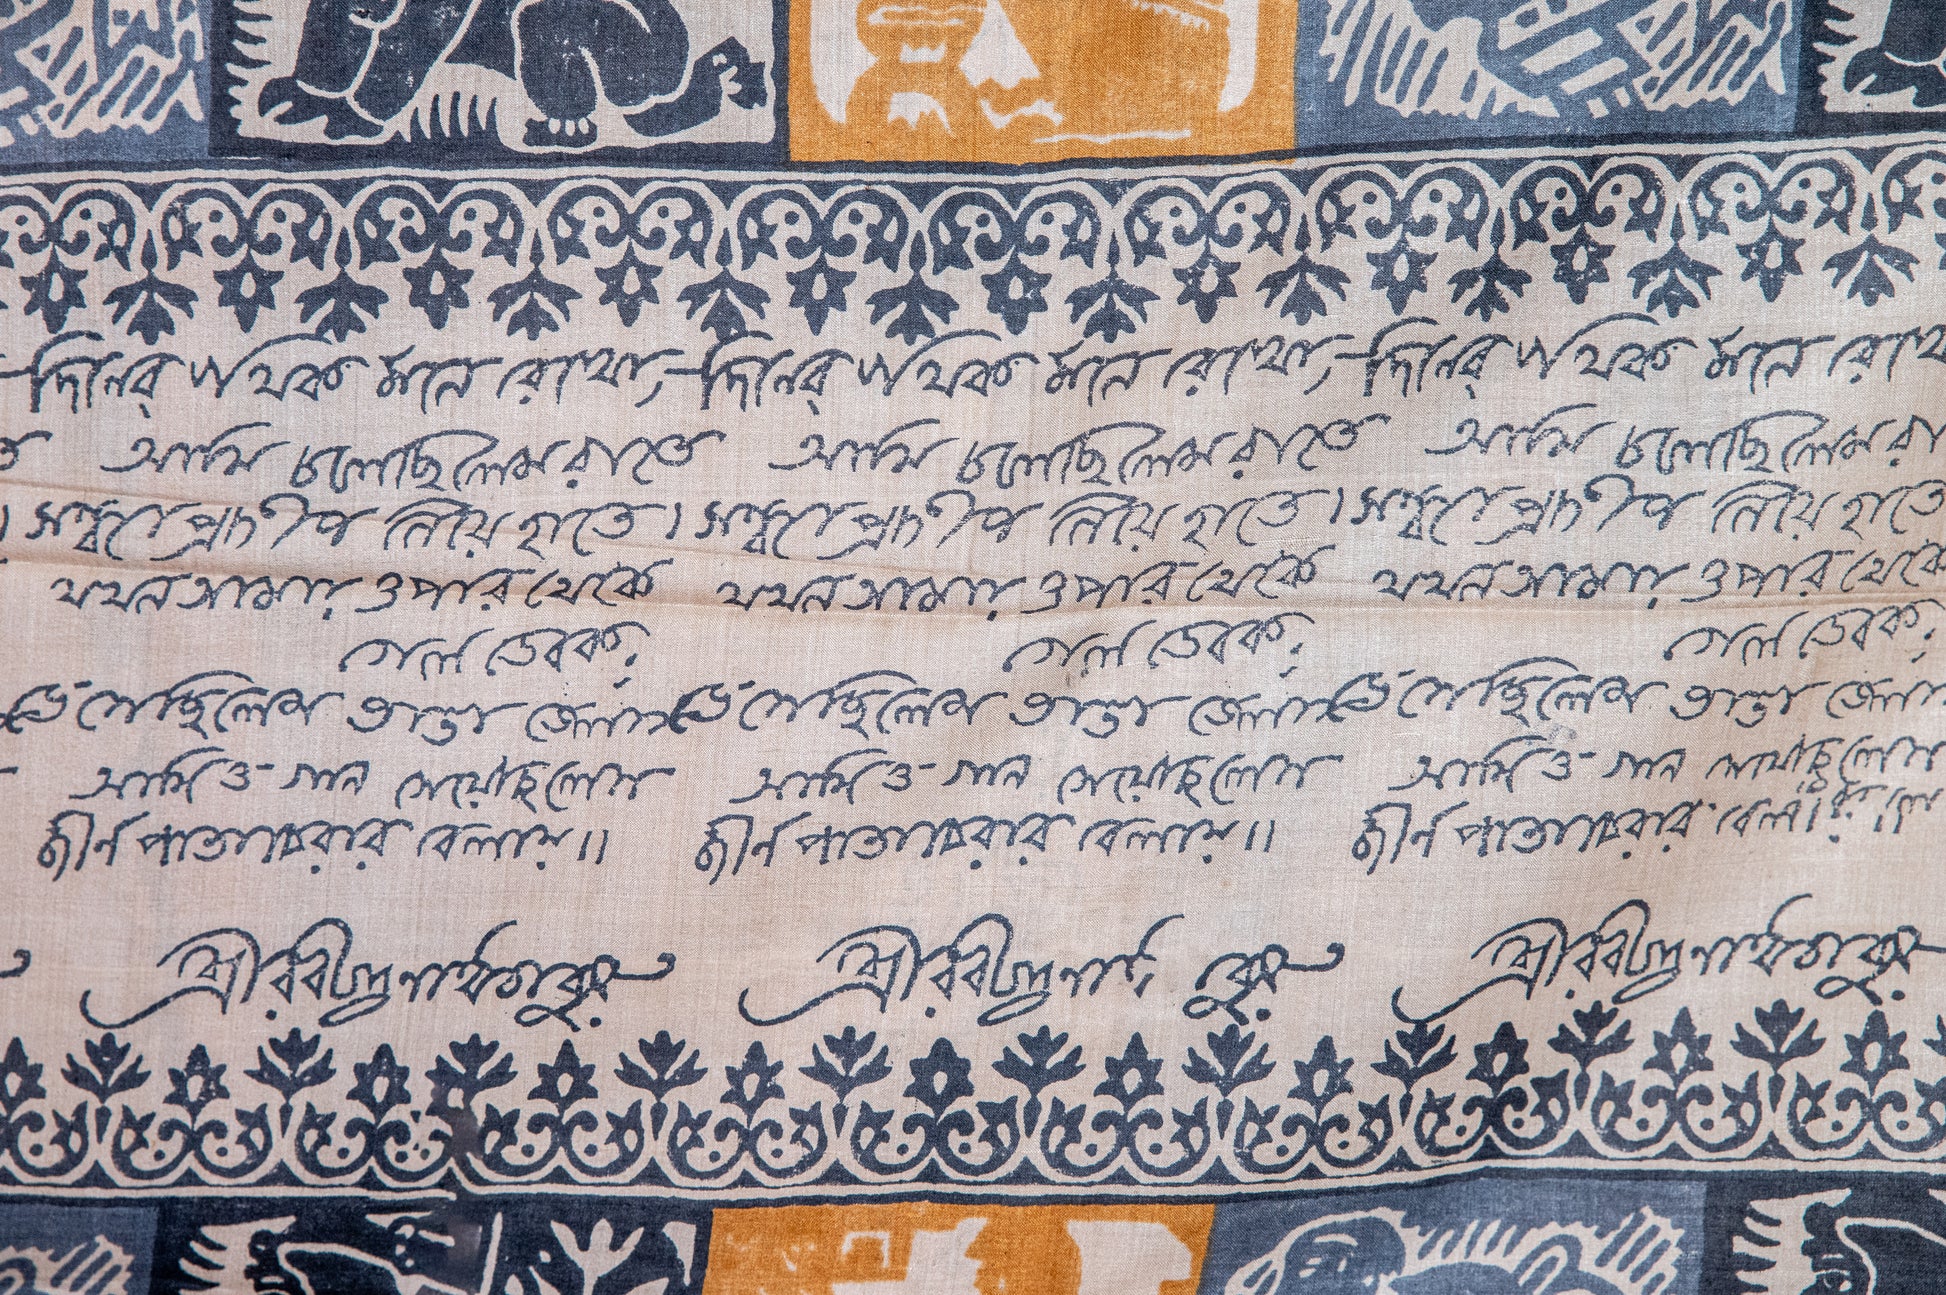 —দিনের পথিক মনে রেখো,—দিনের পথিক মনে রেখো,—দিনের পথিক মনে রেখো
আমি চলেছিলেম রাতে আমি চলেছিলেম রাতে আমি চলেছিলেম রা
। সন্ধ্যাপ্রদীপ নিয়ে হাতে। সন্ধ্যাপ্রদীপ নিয়ে হাতে। সন্ধ্যাপ্রদীপ নিয়ে হাতে
যখন আমায় ওপার থেকে যখন আমায় ওপার থেকে যখন আমায় ওপার থেকে
গেল ডেকে, গেল ডেকে, গেল ডেকে,
ভেসেছিলেম ভাঙা ভেলায় ভেসেছিলেম ভাঙা ভেলায় ভেসেছিলেম ভাঙা ভেলায়
আমিও গান গেয়েছিলেম আমিও গান গেয়েছিলেম আমিও গান গেয়েছিলেম
জীর্ণ পাতা ঝরার বেলায়॥ জীর্ণ পাতা ঝরার বেলায়॥ জীর্ণ পাতা ঝরার
শ্রীরবীন্দ্রনাথ ঠাকুর শ্রীরবীন্দ্রনাথ ঠাকুর শ্রীরবীন্দ্রনাথ ঠাকুর